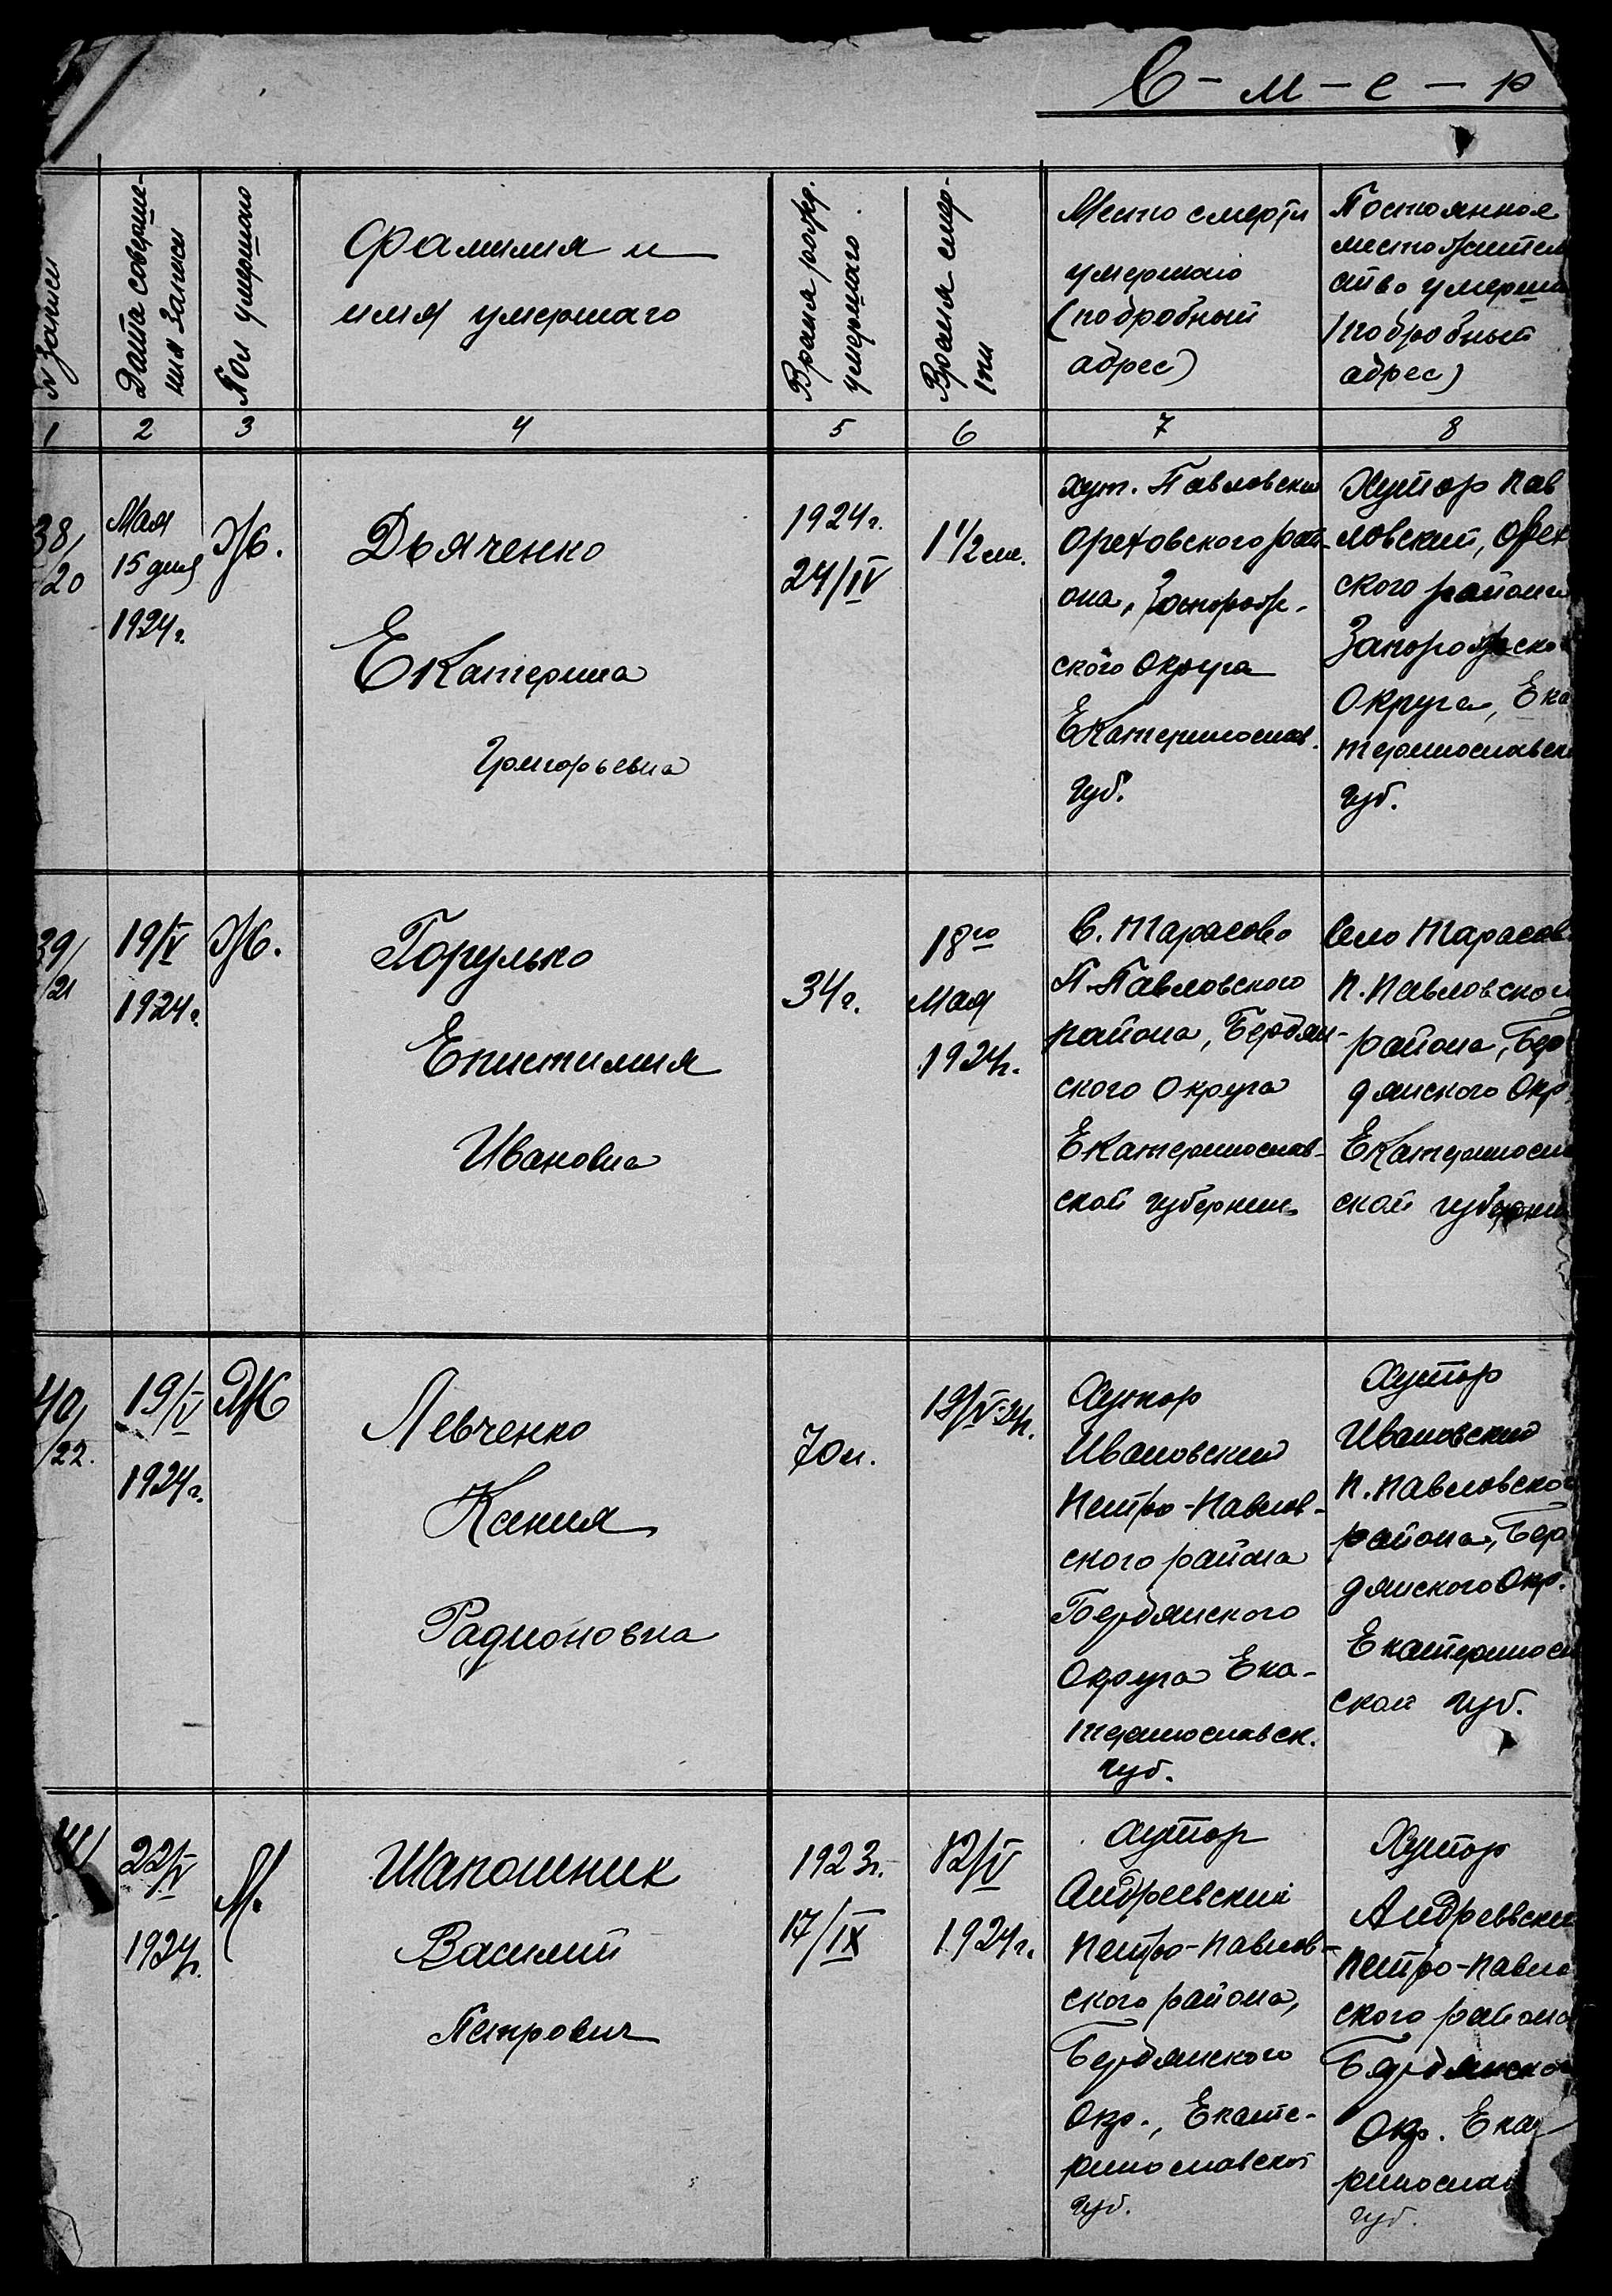 С - м - е - р
№ записи
Дата соверше-
ния записи
Пол умершаго
Фамилия и
имя умершаго
Время рожд.
умершаго.
Время смер-
ти
Место смерти
умершаго
(подробный
адрес)
Постоянное
местожитель
ство умерша
(подробный
адрес)
1 2 3 4 5 6 7 8
38/
/20
Мая
15 дня
1924г.
Ж.
Дьяченко
Екатерина
Григорьевна
1924г.
24/IV
1 1/2 м.
Хут. Павловский
Ореховского рай-
она, Запорож-
ского Округа
Екатеринослав.
Губ.
Хутор Пав
ловский, Орех
ского района
Запорожско
Округа, Ека
теринославск
Губ.
39/
/21
19/V
1924г.
Ж.
Горулько
Епистимия
Ивановна
34г.
18го
Мая
1924г.
С. Тарасово
П.-Павловского
района, Бердян-
ского Округа
Екатеринослав-
ской губернии
Село Тарасов
П. Павловского
района, Бер
дянского Окр
Екатериносл
ской губерни
40/
/22.
19/V
1924г.
Ж
Левченко
Ксения
Радионовна
70л.
19/V-24г.
Хутор
Ивановский
Петро-Павлов-
ского района
Бердянского
Округа Ека-
теринославск.
Губ.
Хутор
Ивановский
П. Павловского
района, Бер
дянского Окр.
Екатериносл
ской Губ.
41/
22/V
1924г.
М.
Шапошник
Василий
Петрович
1923г.
17/IX
12/V
1924г.
Хутор
Андреевский
Петро-Павлов-
ского района,
Бердянского
Окр., Екате-
ринославской
Губ.
Хутор
Андреевски
Петро-Павло
ского района
Бердянско
Окр. Ека
ринослав
Губ.